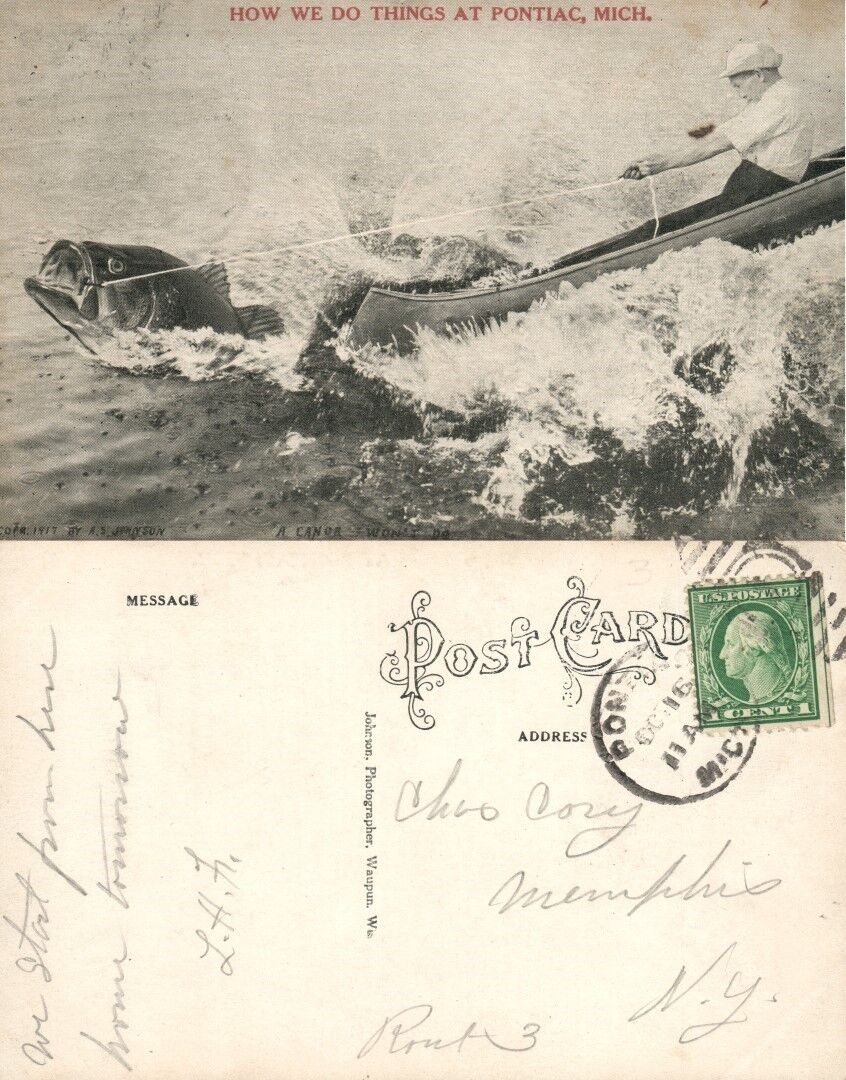 HOW WE DO THINGS AT PONTIAC, MICH.
COPR. 1917 BY A.S. JOHNSON
A CANOE WON'T DO
MESSAGE
POST CARD
U.S. POSTAGE
1 CENTS 1
PONTIAC
OCT 16
11 AM
MICH
ADDRESS
Johnson, Photographer, Waupun, Wis
we start from here
home tomorrow
L.H.F.
Chas Cory
Memphis
N.Y.
Rout 3
3